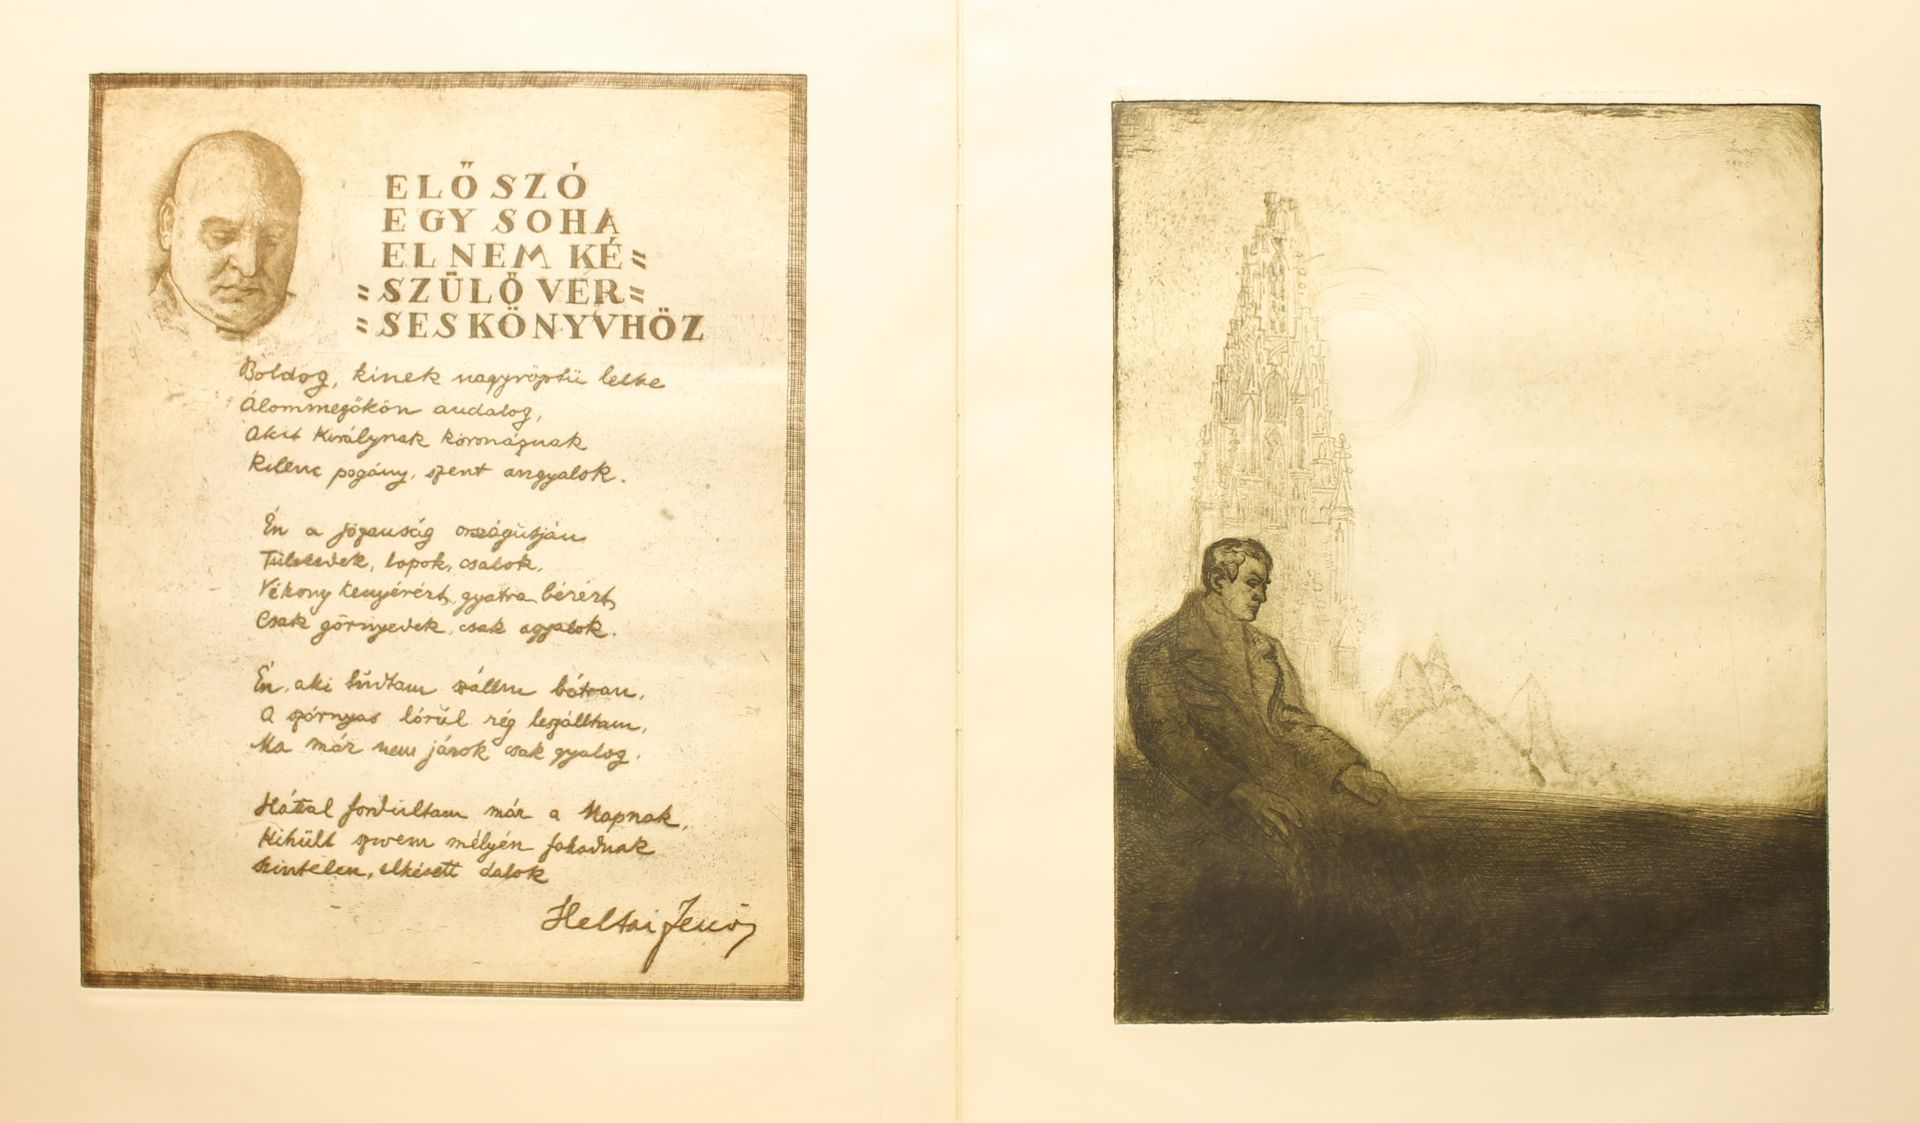 ELŐSZÓ
EGY SOHA
EL NEM KÉ=
=SZÜLŐ VER=
=SESKÖNYVHÖZ
Boldog, kinek nagyröptü lelke
Álommegőkön andalog,
Akit Királynak koronáznak
Kilenc pogány, szent angyalok.
Én a józanság országutján
Tülekedek, lopok, csalok,
Vékony kenyérért, gyatra bérért,
Csak görnyedek, csak agyalok.
Én, aki tudtam szállni bátran,
A szárnyas lórúl rég leszálltam,
Ma már nem járok csak gyalog.
Háttal fordultam már a Napnak,
Kihült szivem mélyén fakadnak
Szintelen, elkésett dalok
Heltai Jenő